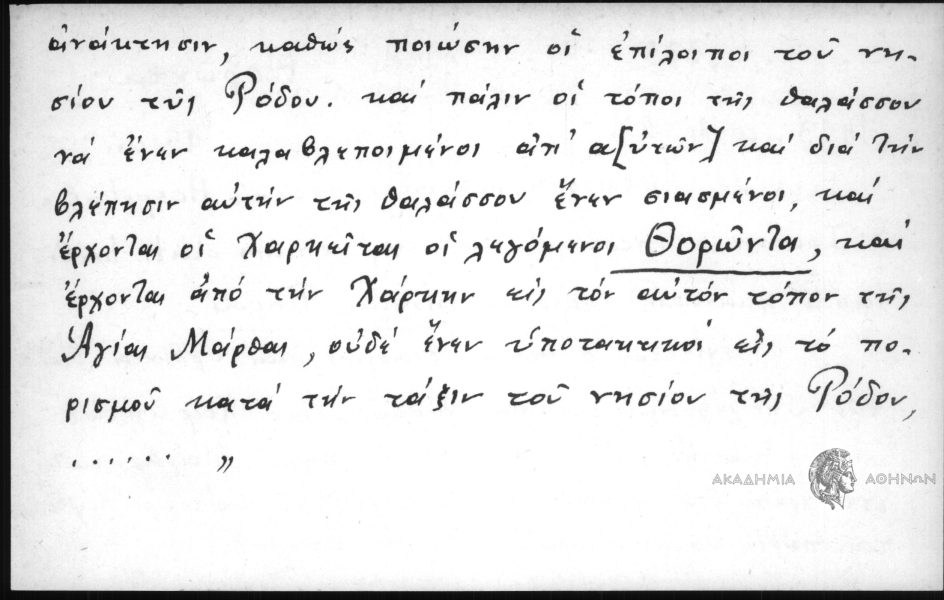 ἀνάκτησιν, καθὼς ποιώσην οἱ ἐπίλοιποι τοῦ νη-
σίου τῆς Ρόδου. καί πάλιν οἱ τόποι τῆς θαλάσσου
νά ἔνεν καλαβλεποιμένοι ἀπ' α[ὐτῶν] καί διά τήν
βλέπησιν αὐτήν τῆς θαλάσσου ἔνεν σιασμένοι, καί
ἔρχονται οἱ Χαρκεῖται οἱ λεγόμενοι Θορῶνται, καί
ἔρχονται ἀπό τήν Χάρκην εἰς τόν αὐτόν τόπον τῆς
Ἁγίας Μάρθας, οὐδέ ἔνεν ὑποτακτικοί εἰς τό πο-
ρισμοῦ κατά τήν τάξιν τοῦ νησίου τῆς Ρόδου,
....... „
ΑΚΑΔΗΜΙΑ ΑΘΗΝΩΝ